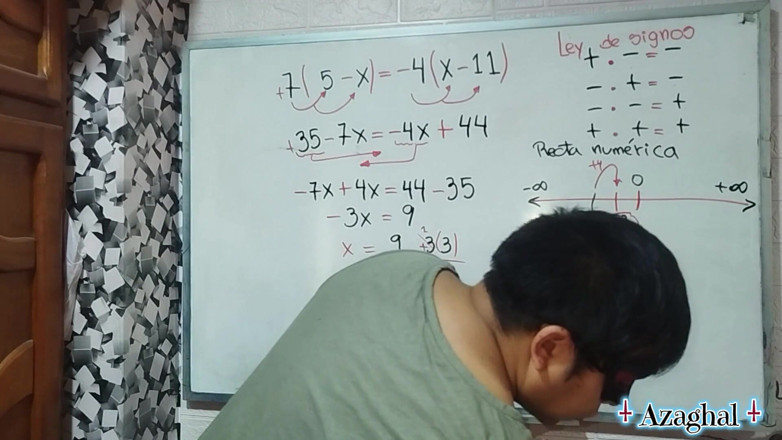 +7(5-x)=-4(x-11)
+35-7x=-4x+44
-7x+4x=44-35
-3x=9
x = 9 3(3)
Ley de signos
+ . - = -
- . + = -
- . - = +
+ . + = +
Recta numérica
+4
-∞ 0 +∞
Azaghal